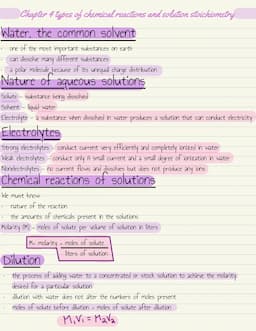 Chapter 4 types of chemical reactions and solution stoichiometry
Water, the common solvent
· one of the most important substances on earth
· can dissolve many different substances
· a polar molecule because of its unequal charge distribution
Nature of aqueous solutions
Solute - substance being dissolved
Solvent - liquid water
Electrolyte - a substance when dissolved in water produces a solution that can conduct electricity
Electrolytes
Strong electrolytes - conduct current very efficiently and completely ionized in water
Weak electrolytes - conduct only A small current and a small degree of ionization in water
Nonelectrolytes - no current flows and dissolves but does not produce any ions
Chemical reactions of solutions
We must know
· nature of the reaction
· the amounts of chemicals present in the solutions
Molarity (M) - moles of solute per volume of solution in liters
M= molarity = moles of solute
liters of solution
Dilution
· the process of adding water to a concentrated or stock solution to achieve the molarity
desired for a particular solution
· dilution with water does not alter the numbers of moles present
· moles of solute before dilution = moles of solute after dilution
M₁V₁ = M₂V₂